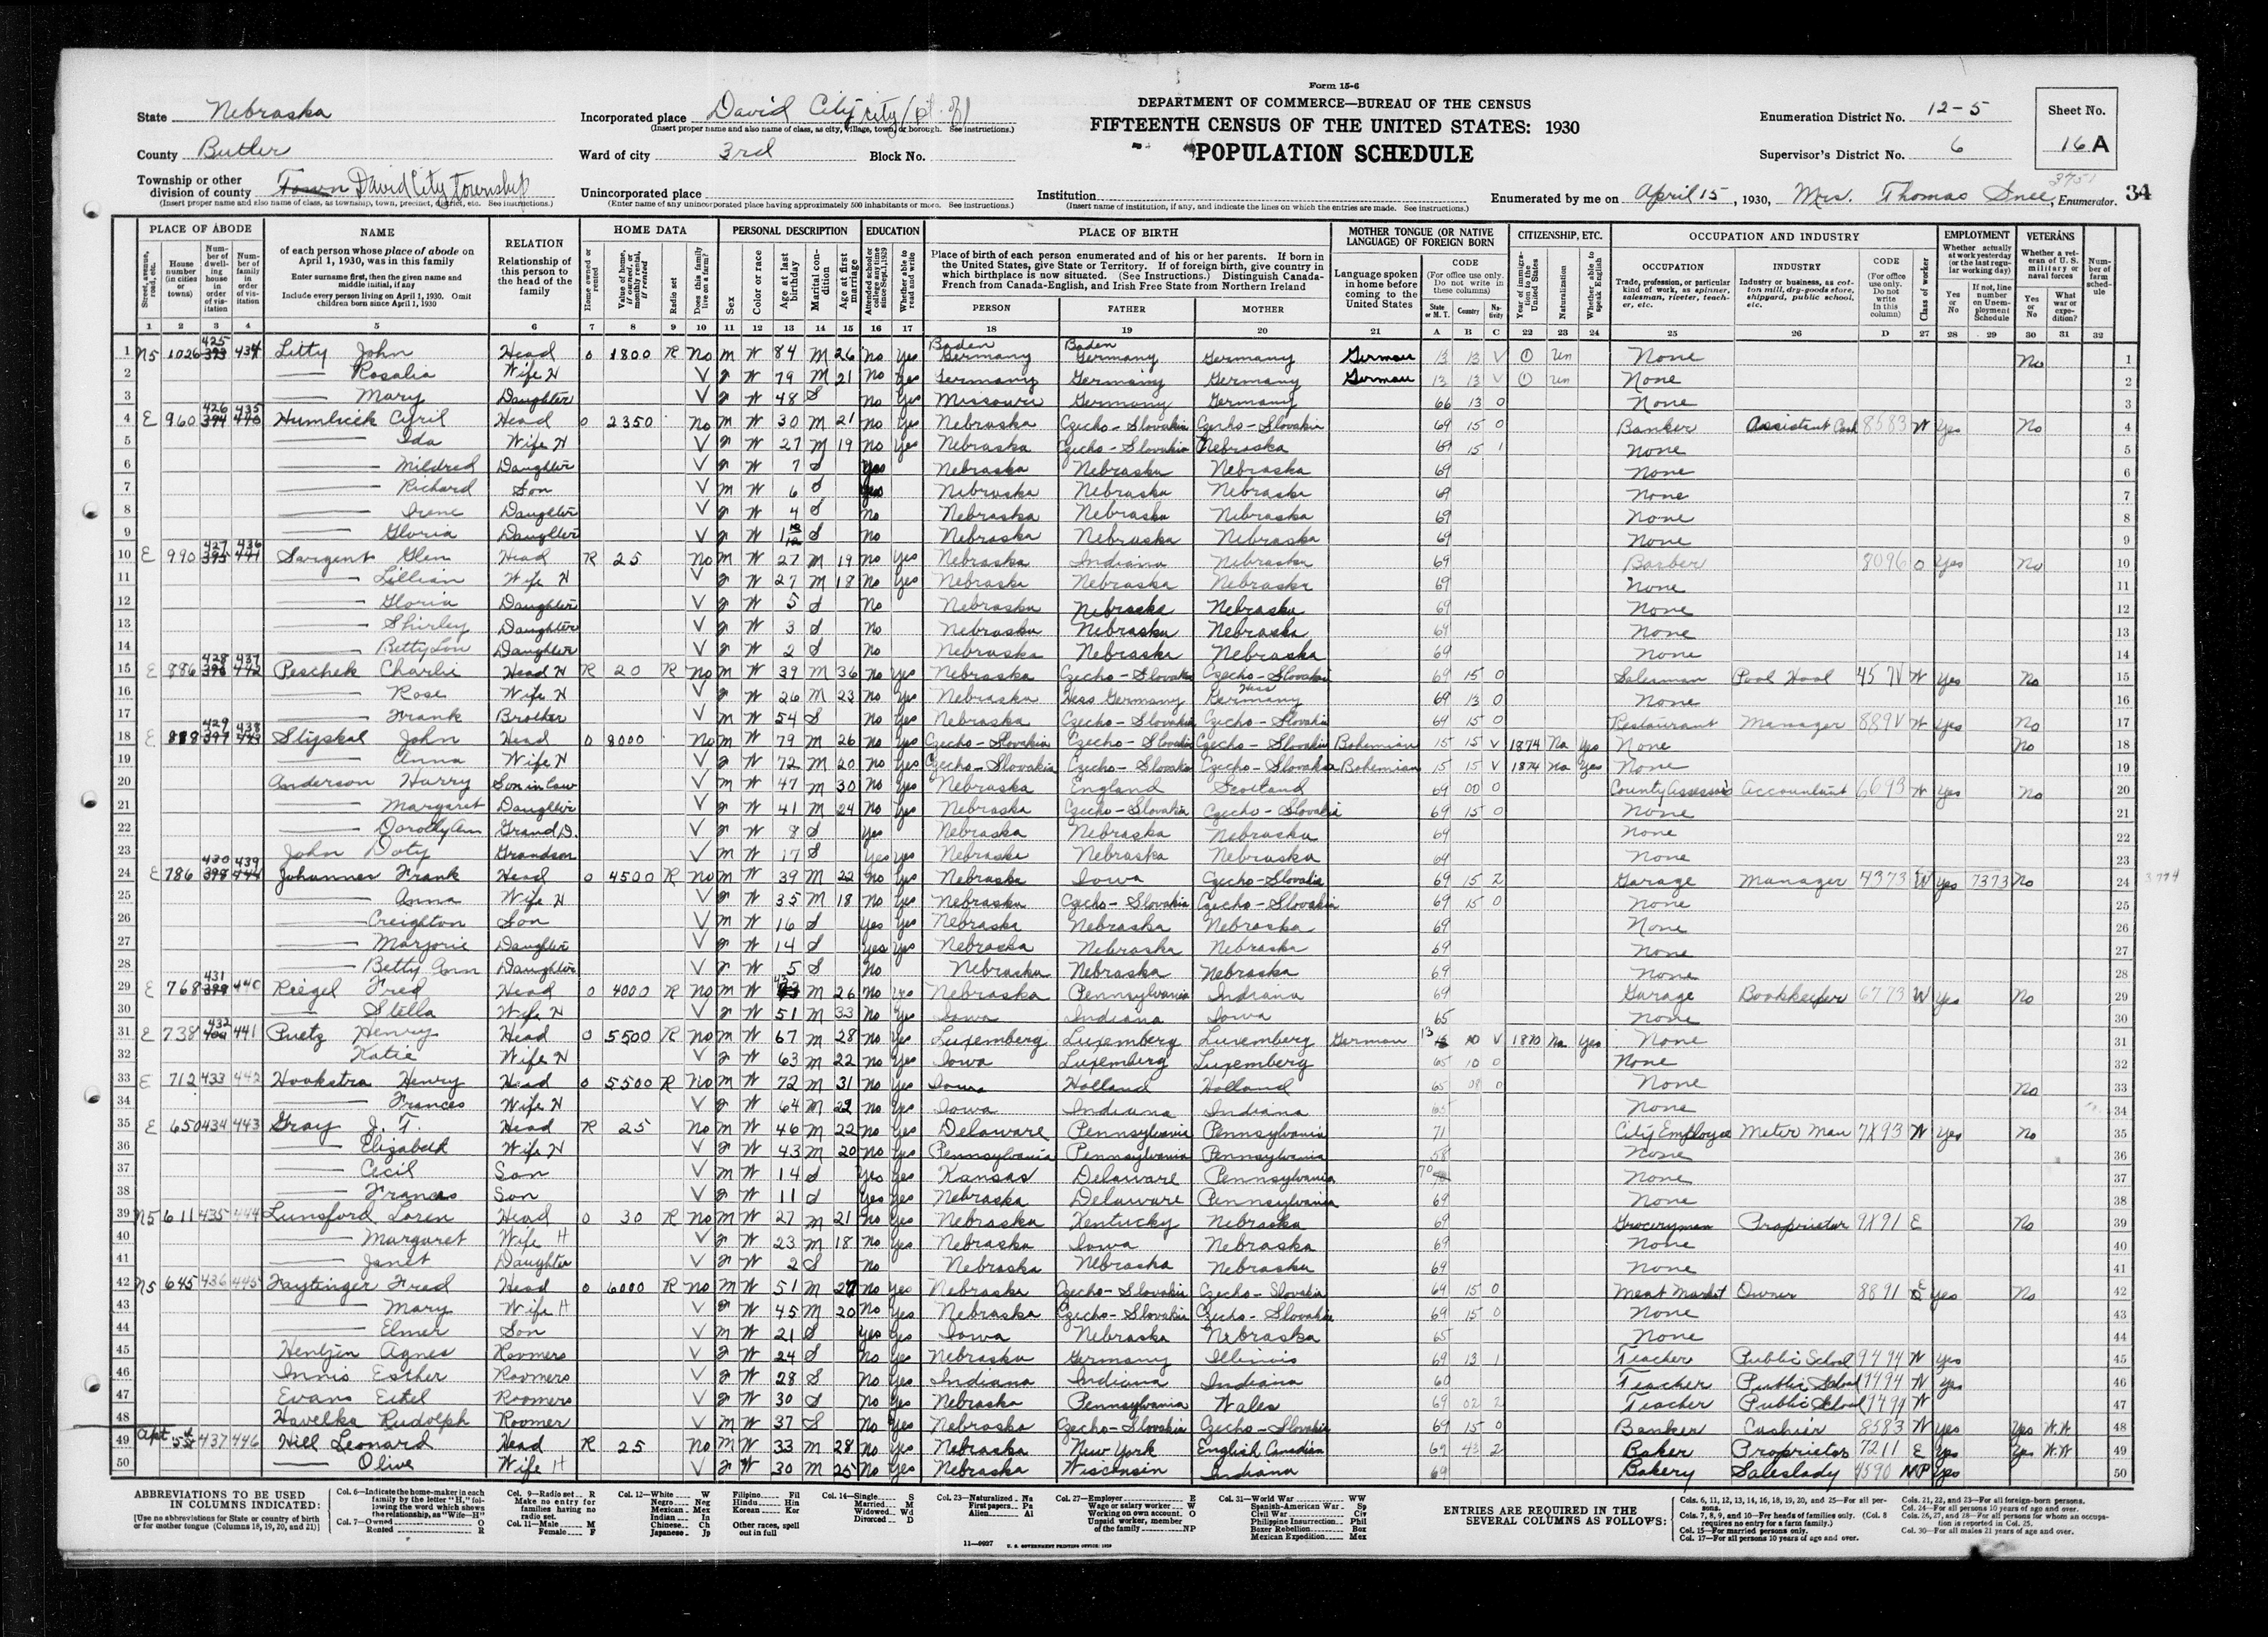 Form 15-6
DEPARTMENT OF COMMERCE—BUREAU OF THE CENSUS
FIFTEENTH CENSUS OF THE UNITED STATES: 1930
POPULATION SCHEDULE
State Nebraska
County Butler
Township or other division of county Town David City township
(Insert proper name and also name of class, as township, town, precinct, district, etc. See instructions.)
Incorporated place David City city (pt. of)
(Insert proper name and also name of class, as city, village, town, or borough. See instructions.)
Ward of city 3rd Block No.
Unincorporated place
(Enter name of any unincorporated place having approximately 500 inhabitants or more. See instructions.)
Institution
(Insert name of institution, if any, and indicate the lines on which the entries are made. See instructions.)
Enumeration District No. 12-5
Supervisor's District No. 6
Sheet No. 16 A
Enumerated by me on April 15, 1930, Mrs. Thomas Snee, Enumerator. 34
PLACE OF ABODE NAME RELATION HOME DATA PERSONAL DESCRIPTION EDUCATION PLACE OF BIRTH MOTHER TONGUE (OR NATIVE LANGUAGE) OF FOREIGN BORN CITIZENSHIP, ETC. OCCUPATION AND INDUSTRY EMPLOYMENT VETERANS
1 N5 1026 425 434 Litty John Head O 1800 R No M W 84 M 26 No Yes Baden Germany Baden Germany Germany German 13 13 V Un None No
2 Rosalia Wife H V F W 79 M 21 No Yes Germany Germany Germany German 13 13 V Un None
3 Mary Daughter V F W 48 S No Yes Missouri Germany Germany 66 13 0 None
4 E 960 426 435 Humlicek Cyril Head O 2350 No M W 30 M 21 No Yes Nebraska Czecho-Slovakia Czecho-Slovakia 69 15 0 Banker Assistant Cash 8583 W Yes No
5 Ida Wife H V F W 27 M 19 No Yes Nebraska Czecho-Slovakia Nebraska 69 15 1 None
6 Mildred Daughter V F W 7 S Yes Nebraska Nebraska Nebraska 69 None
7 Richard Son V M W 6 S Yes Nebraska Nebraska Nebraska 69 None
8 Irene Daughter V F W 4 S No Nebraska Nebraska Nebraska 69 None
9 Gloria Daughter V F W 1 10/12 S No Nebraska Nebraska Nebraska 69 None
10 E 990 427 436 Sargent Glen Head R 25 No M W 27 M 19 No Yes Nebraska Indiana Nebraska 69 Barber 8096 O Yes No
11 Lillian Wife H V F W 27 M 18 No Yes Nebraska Nebraska Nebraska 69 None
12 Gloria Daughter V F W 5 S No Nebraska Nebraska Nebraska 69 None
13 Shirley Daughter V F W 3 S No Nebraska Nebraska Nebraska 69 None
14 Betty Lou Daughter V F W 2 S No Nebraska Nebraska Nebraska 69 None
15 E 886 428 437 Peschek Charlie Head H R 20 R No M W 39 M 36 No Yes Nebraska Czecho-Slovakia Czecho-Slovakia 69 15 0 Salesman Pool Hool 45 W Yes No
16 Rose Wife H V F W 26 M 23 No Yes Nebraska Hess Germany Hess Germany 69 13 0 None
17 Frank Brother V M W 54 S No Yes Nebraska Czecho-Slovakia Czecho-Slovakia 69 15 0 Restaurant Manager 889V W Yes No
18 E 888 429 438 Styskal John Head O 8000 No M W 79 M 26 No Yes Czecho-Slovakia Czecho-Slovakia Czecho-Slovakia Bohemian 15 15 V 1874 Na Yes None No
19 Anna Wife H V F W 72 M 20 No Yes Czecho-Slovakia Czecho-Slovakia Czecho-Slovakia Bohemian 15 15 V 1874 Na Yes None
20 Anderson Harry Son in law V M W 47 M 30 No Yes Nebraska England Scotland 69 00 0 County Assessor Accountant 6693 W Yes No
21 Margaret Daughter V F W 41 M 24 No Yes Nebraska Czecho-Slovakia Czecho-Slovakia 69 15 0 None
22 Dorothy Ann Grand D. V F W 8 S Yes Nebraska Nebraska Nebraska 69 None
23 John Doty Grandson V M W 17 S Yes Yes Nebraska Nebraska Nebraska 69 None
24 E 786 430 439 Johannes Frank Head O 4500 R No M W 39 M 22 No Yes Nebraska Iowa Czecho-Slovakia 69 15 2 Garage Manager 4373 W Yes 7373 No
25 Anna Wife H V F W 35 M 18 No Yes Nebraska Czecho-Slovakia Czecho-Slovakia 69 15 0 None
26 Creighton Son V M W 16 S Yes Yes Nebraska Nebraska Nebraska 69 None
27 Marjorie Daughter V F W 14 S Yes Yes Nebraska Nebraska Nebraska 69 None
28 Betty Ann Daughter V F W 5 S No Nebraska Nebraska Nebraska 69 None
29 E 768 431 440 Riegel Fred Head O 4000 R No M W M 26 No Yes Nebraska Pennsylvania Indiana 69 Garage Bookkeeper 6773 W Yes No
30 Stella Wife H V F W 51 M 33 No Yes Iowa Indiana Iowa 65 None
31 E 738 432 441 Puetz Henry Head O 5500 R No M W 67 M 28 No Yes Luxemberg Luxemberg Luxemberg German 13 10 V 1870 Na Yes None
32 Katie Wife H V F W 63 M 22 No Yes Iowa Luxemberg Luxemberg 65 10 0 None
33 E 712 433 442 Hookstra Henry Head O 5500 R No M W 72 M 31 No Yes Iowa Holland Holland 65 08 0 None No
34 Frances Wife H V F W 64 M 22 No Yes Iowa Indiana Indiana 65 None
35 E 650 434 443 Gray J. T. Head R 25 No M W 46 M 22 No Yes Delaware Pennsylvania Pennsylvania 71 City Employee Meter Man 7X93 W Yes No
36 Elizabeth Wife H V F W 43 M 20 No Yes Pennsylvania Pennsylvania Pennsylvania 58 None
37 Cecil Son V M W 14 S Yes Yes Kansas Delaware Pennsylvania 70 None
38 Frances Son V F W 11 S Yes Yes Nebraska Delaware Pennsylvania 69 None
39 N5 611 435 444 Lunsford Loren Head O 30 R No M W 27 M 21 No Yes Nebraska Kentucky Nebraska 69 Groceryman Proprietor 9X91 E No
40 Margaret Wife H V F W 23 M 18 No Yes Nebraska Iowa Nebraska 69 None
41 Janet Daughter V F W 2 S No Nebraska Nebraska Nebraska 69 None
42 N5 645 436 445 Faytinger Fred Head O 6000 R No M W 51 M 27 No Yes Nebraska Czecho-Slovakia Czecho-Slovakia 69 15 0 Meat Market Owner 8891 E Yes No
43 Mary Wife H V F W 45 M 20 No Yes Nebraska Czecho-Slovakia Czecho-Slovakia 69 15 0 None
44 Elmer Son V M W 21 S Yes Yes Iowa Nebraska Nebraska 65 None
45 Hentjen Agnes Roomers V F W 24 S No Yes Nebraska Germany Illinois 69 13 1 Teacher Public School 9494 W Yes
46 Innis Esther Roomers V F W 28 S No Yes Indiana Indiana Indiana 60 Teacher Public School 9494 W Yes
47 Evans Ethel Roomers V F W 30 S No Yes Nebraska Pennsylvania Wales 69 02 2 Teacher Public School 9494 W
48 Havelka Rudolph Roomer V M W 37 S No Yes Nebraska Czecho-Slovakia Czecho-Slovakia 69 15 0 Banker Cashier 8583 W Yes Yes W.W
49 Apt 5th 437 446 Hill Leonard Head R 25 No M W 33 M 28 No Yes Nebraska New York English Canadian 69 43 2 Baker Proprietor 7211 E Yes Yes W.W
50 Olive Wife H V F W 30 M 25 No Yes Nebraska Wisconsin Indiana 69 Bakery Saleslady 4590 NP Yes
ABBREVIATIONS TO BE USED IN COLUMNS INDICATED:
[Use no abbreviations for State or country of birth or for mother tongue (Columns 18, 19, 20, and 21)]
ENTRIES ARE REQUIRED IN THE SEVERAL COLUMNS AS FOLLOWS:
11—9927 U. S. GOVERNMENT PRINTING OFFICE: 1929